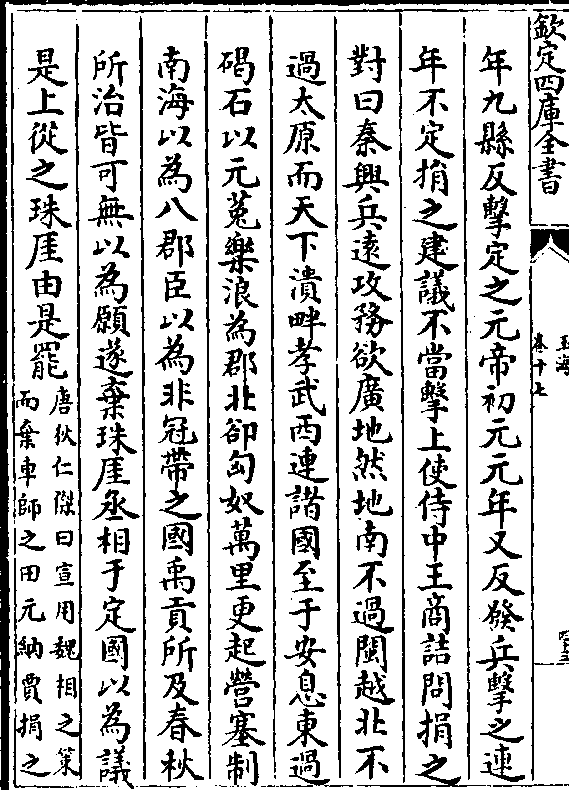 欽定四庫全書
玉海
卷十七
年九縣反擊定之元帝初元元年又反發兵擊之連
年不定捐之建議不當擊上使侍中王商詰問捐之
對曰秦興兵遠攻務欲廣地然地南不過閩越北不
過太原而天下潰畔孝武西連諸國至于安息東過
碣石以元菟樂浪為郡北卻匈奴萬里更起營塞制
南海以為八郡臣以為非冠帶之國禹貢所及春秋
所治皆可無以為願遂棄珠厓丞相于定國以為議
是上從之珠厓由是罷
唐狄仁傑曰宣用魏相之策
而棄車師之田元納賈捐之